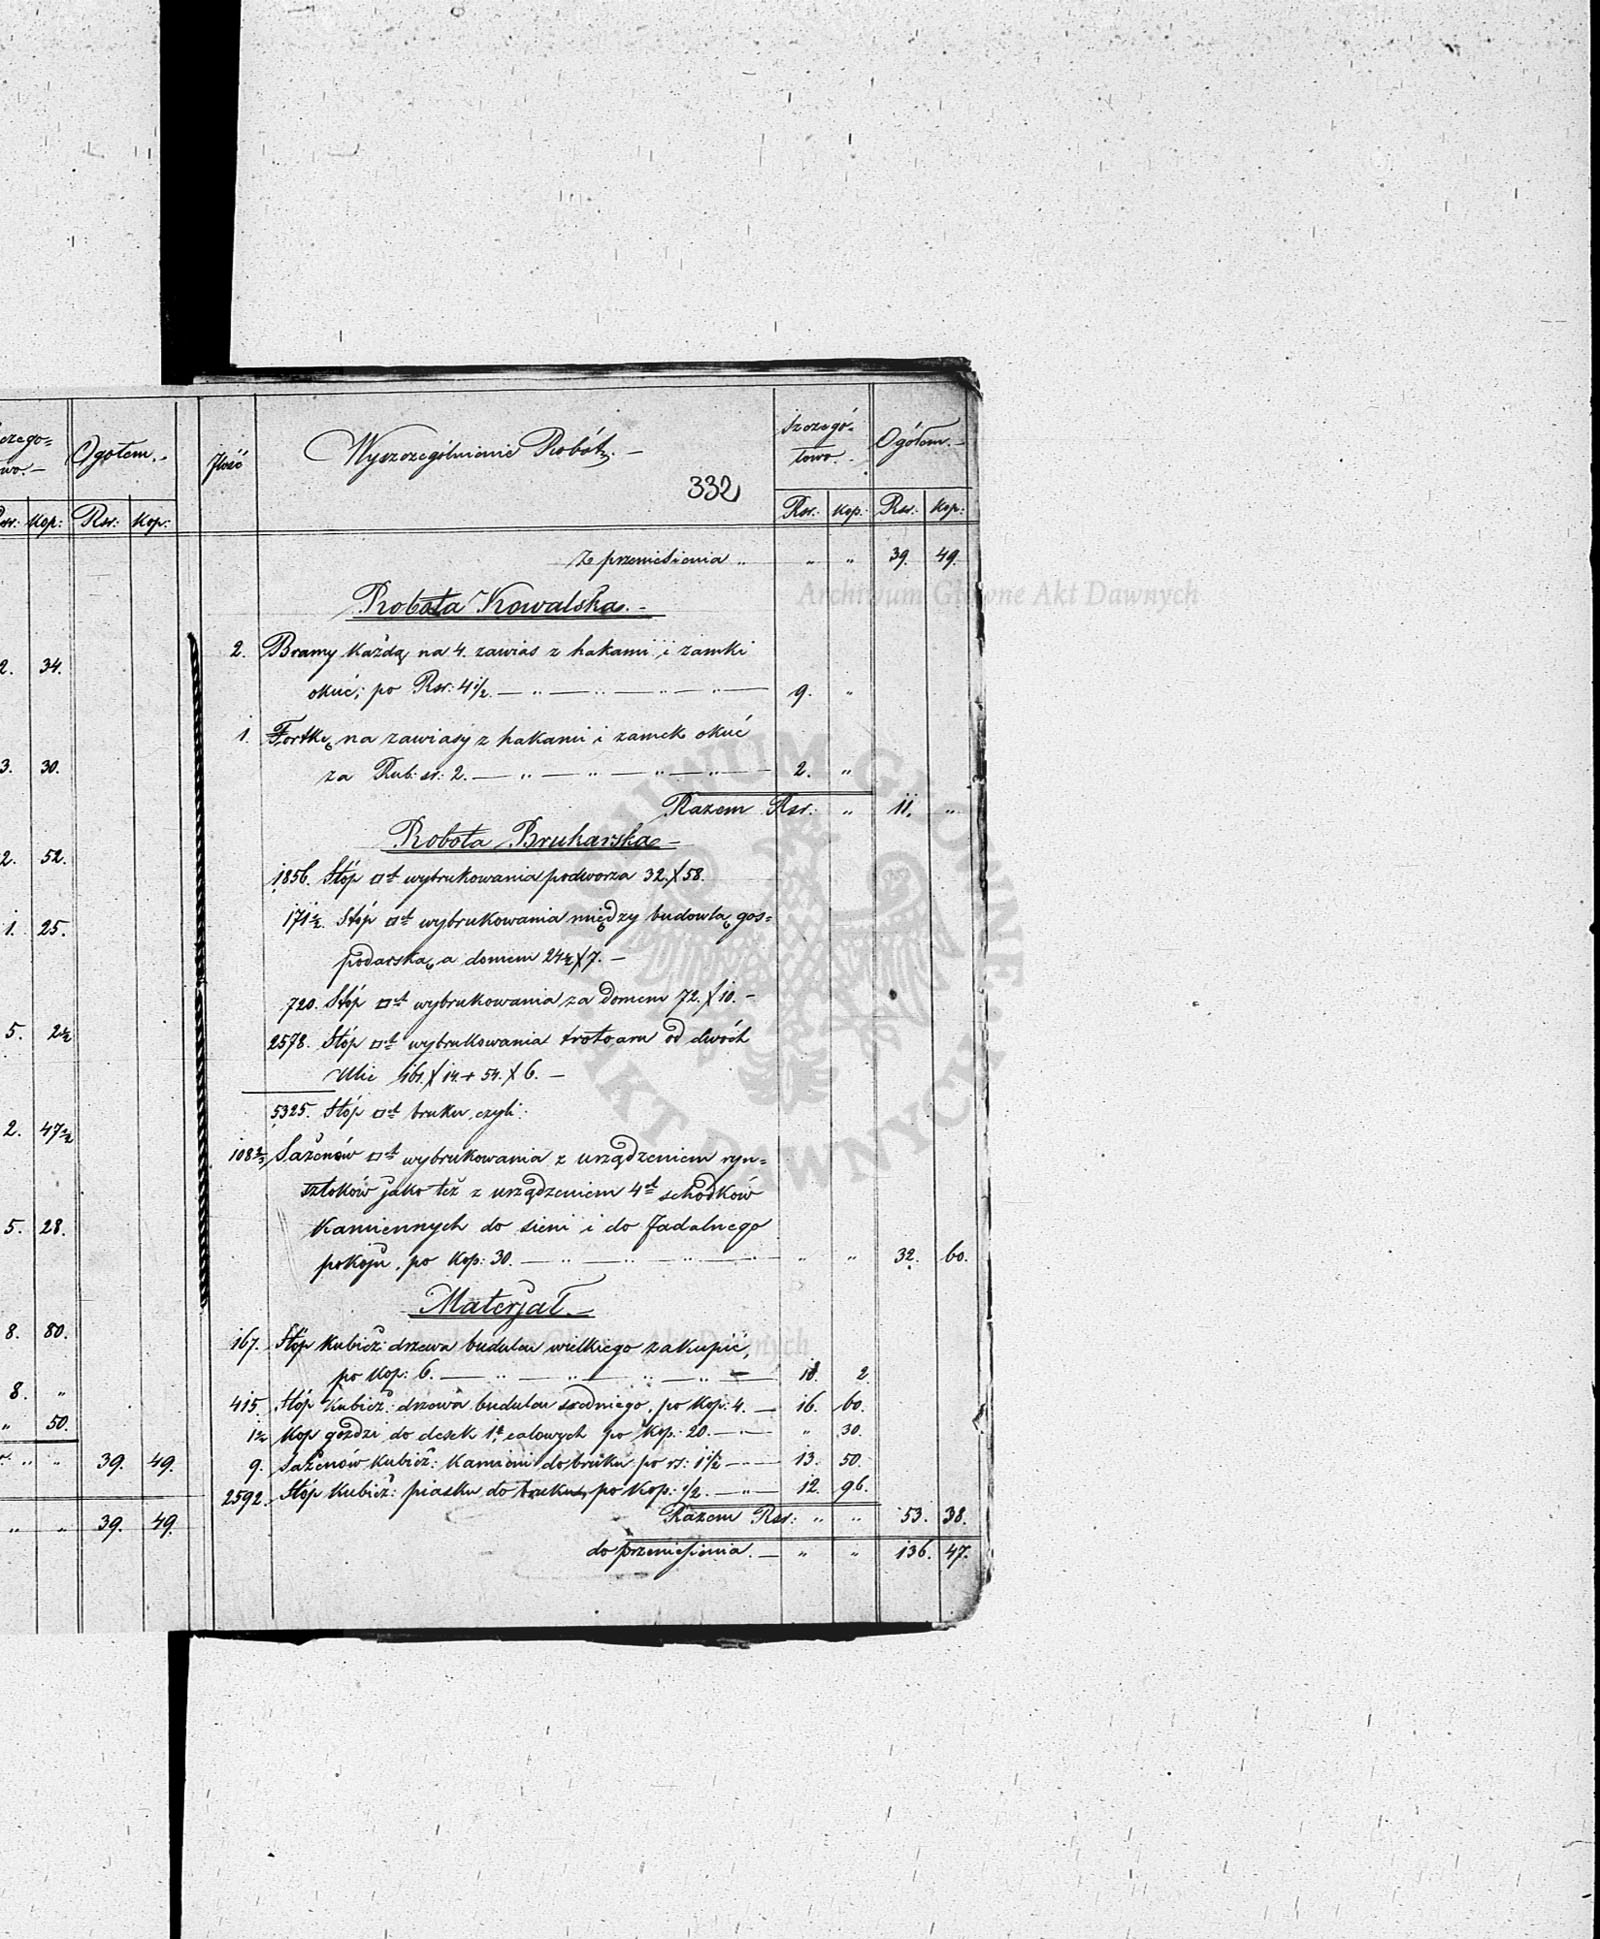 Ogółem.
Rsr: Kop: Rsr: Kop:
2. 34.
3. 30.
2. 52.
1. 25.
5. 2½
2. 47½
5. 28.
8. 80.
8. "
" 50.
" " 39. 49.
" " 39. 49.
Ilość Wyszczególnienie Robót. Szczegó= Ogółem.
towo.
332
Rsr: Kop: Rsr: Kop:
Z przeniesienia " " " 39. 49.
Robota Kowalska.
2. Bramy każdą na 4. zawias z hakami i zamki
okuć; po Rsr: 4½. — " — " — " — " — 9. "
1. Fortkę na zawiasy z hakami i zamek okuć
za Rub: sr: 2. — " — " — " — " — 2. "
Razem Rsr: " 11. "
Robota Brukarska
1856. Stóp □t wybrukowania podworza 32. x 58.
171½. Stóp □t wybrukowania między budowlą gos=
podarską a domem 24½ x 7. —
720. Stóp □t wybrukowania za domem 72. x 10. —
2578. Stóp □t wybrukowania trotoaru od dwóch
Ulic 161. x 14. + 54. x 6. —
5325. Stóp □t bruku, czyli:
108⅔ Sażenów □t wybrukowania z urządzeniem ryn=
sztoków jako też z urządzeniem 4ch schodków
Kamiennych do sieni i do Jadalnego
pokoju, po Kop: 30. — " — " — " — " — " " 32. 60.
Materjał.
167. Stóp Kubicz: drzewa budulcu wielkiego zakupić,
po Kop: 6. — " — " — " — " — 10. 2.
415. Stóp Kubicz: drzewa budulcu średniego, po Kop: 4. — 16. 60.
1½ Kop goździ do desek 1o calowych po Kop: 20. — " — " 30.
9. Sażenów Kubicz: Kamieni do bruku po rs: 1½ — " — 13. 50.
2592. Stóp Kubicz: piasku do bruku, po Kop: ½. — " — 12. 96.
Razem Rsr: " " 53. 38.
do przeniesienia. — " " 136. 47.
Archiwum Główne Akt Dawnych
ARCHIWUM GŁÓWNE AKT DAWNYCH
Archiwum Główne Akt Dawnych